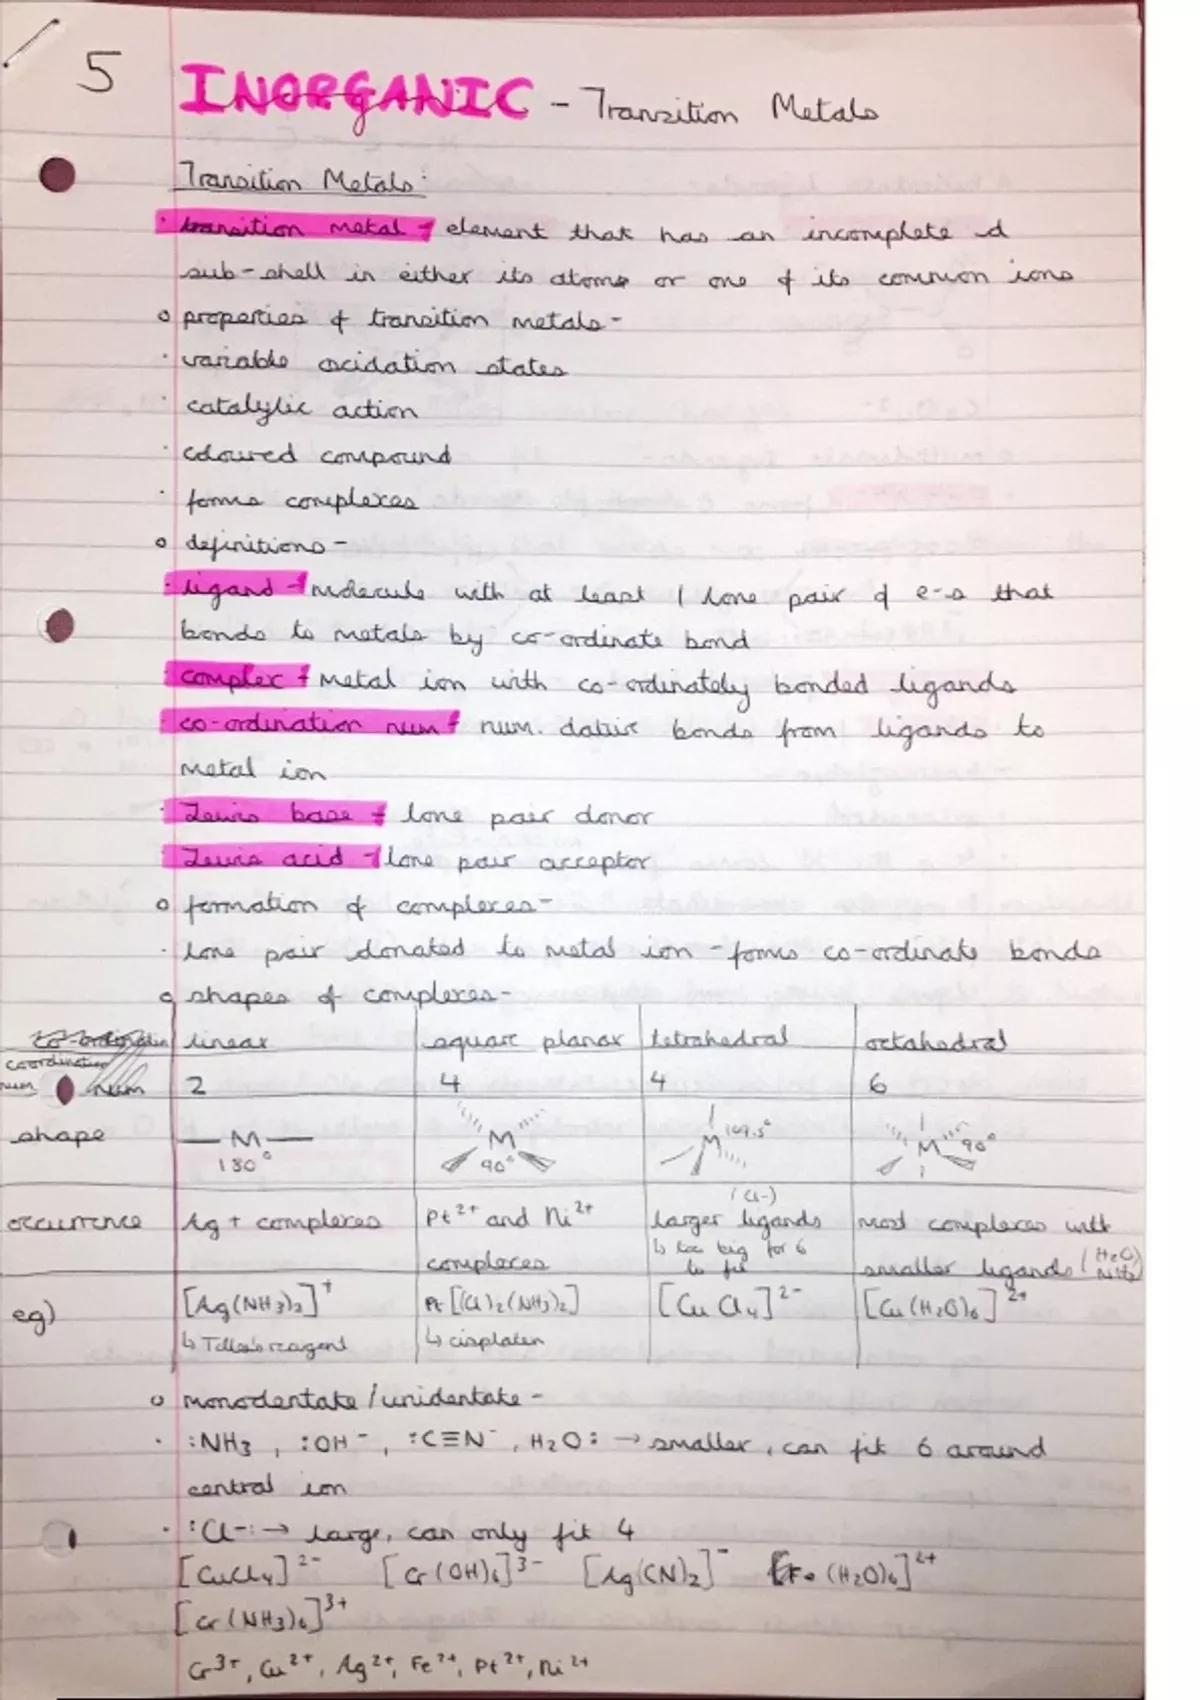 5 INORGANIC - Transition Metals
Transition Metals:
· transition metal - element that has an incomplete d
sub-shell in either its atoms or one of its common ions
o properties of transition metals -
· variable oxidation states
· catalytic action
· coloured compound
· forms complexes
o definitions -
· ligand - molecule with at least 1 lone pair of e-s that
bonds to metals by co-ordinate bond
· complex - metal ion with co-ordinately bonded ligands
· co-ordination num - num. dative bonds from ligands to
metal ion
· Lewis base - lone pair donor
· Lewis acid - lone pair acceptor
o formation of complexes -
· lone pair donated to metal ion - forms co-ordinate bonds
o shapes of complexes -
co-ordination linear square planar tetrahedral octahedral
coordination
num num 2 4 4 6
shape — M — 180° M 90° M 109.5° M 90°
(Cl-)
occurrence Ag + complexes Pt²⁺ and Ni²⁺ larger ligands most complexes with
complexes ↳ too big for 6 to fit smaller ligands (H₂O, NH₃)
eg) [Ag(NH₃)₂]⁺ Pt[(Cl)₂(NH₃)₂] [CuCl₄]²⁻ [Cu(H₂O)₆]²⁺
↳ Tollen's reagent ↳ cisplaten
o monodentate / unidentate -
· :NH₃ , :OH⁻ , :C≡N⁻ , H₂O: → smaller, can fit 6 around
central ion
· :Cl⁻: → large, can only fit 4
[CuCl₄]²⁻ [Cr(OH)₆]³⁻ [Ag(CN)₂]⁻ [Fe(H₂O)₆]²⁺
[Cr(NH₃)₆]³⁺
Cr³⁺, Cu²⁺, Ag²⁺, Fe²⁺, Pt²⁺, Ni²⁺